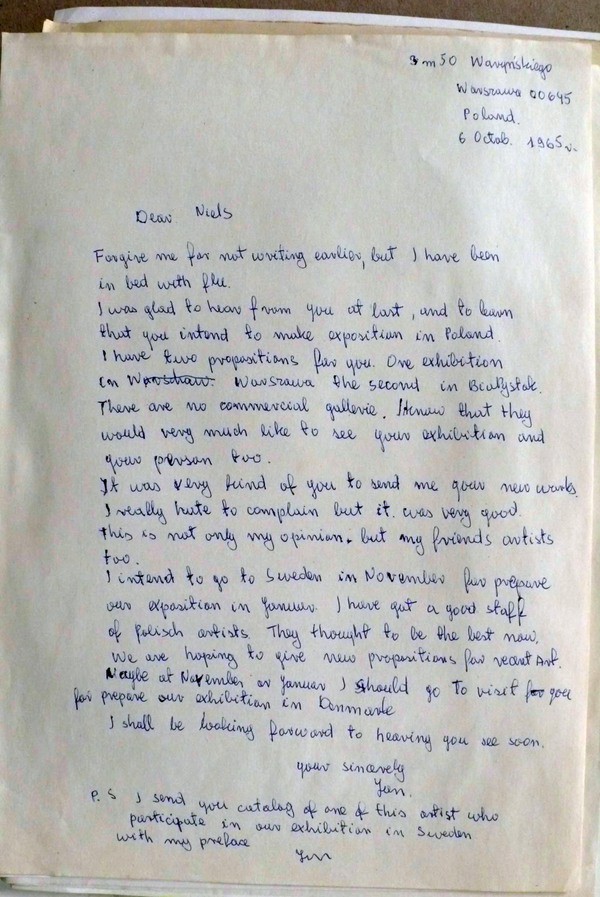 9 m 50 Waryńskiego
Warszawa 00645
Poland.
6 Octob. 1965 r.
Dear Niels
Forgive me for not writing earlier, but I have been
in bed with flu.
I was glad to hear from you at last, and to learn
that you intend to make exposition in Poland.
I have two propositions for you. One exhibition
in Warschaw. Warszawa the second in Białystok.
There are no commercial gallerie. I know that they
would very much like to see your exhibition and
your person too.
It was very kind of you to send me your new works.
I really hate to complain but it was very good.
this is not only my opinion, but my friends artists
too.
I intend to go to Sweden in November for prepare
our exposition in Januar. I have got a good staff
of Polisch artists They thought to be the best now.
We are hoping to give new propositions for recent Art.
Maybe at November or Januar I should go to visit for you
for prepare our exhibition in Denmark
I shall be looking forward to hearing you see soon.
your sincerely
Jan.
P. S I send you catalog of one of this artist who
participate in our exhibition in Sweden
with my preface
Jan